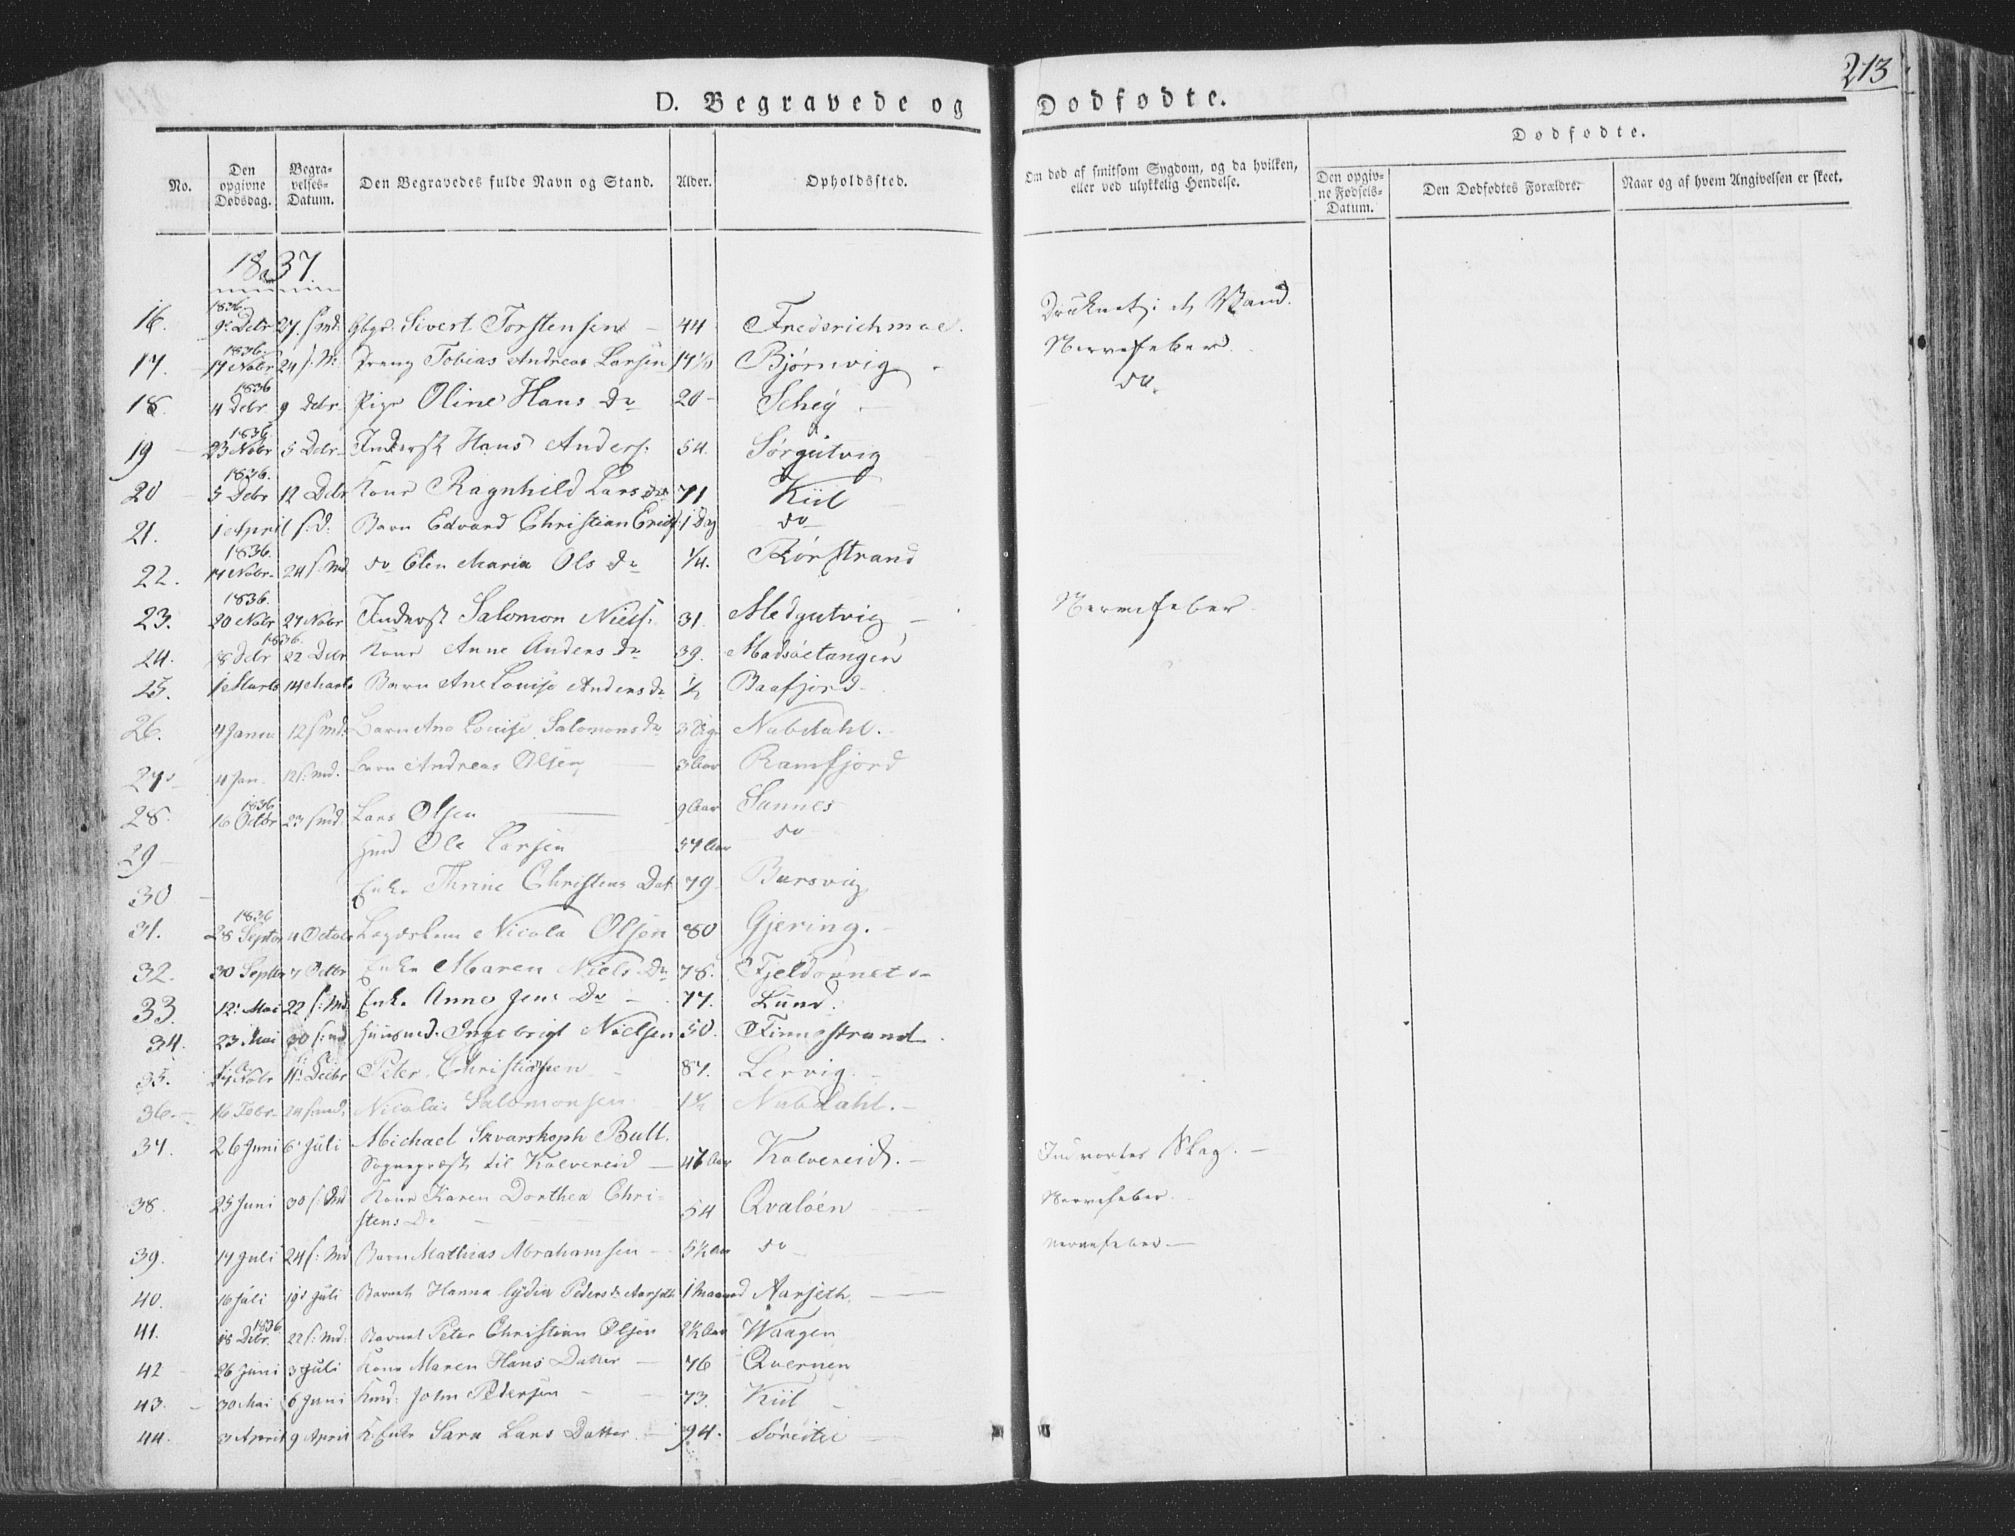 213
D. Begravede og Dødfødte.
Dødfødte.
No. Den opgivne Dødsdag. Begravelses-Datum. Den Begravedes fulde Navn og Stand. Alder. Opholdssted. Om død af smitsom Sygdom, og da hvilken, eller ved ulykkelig Hendelse. Den opgivne Fødsels-Datum. Den Dødfødtes Forældre. Naar og af hvem Angivelsen er skeet.
1837.
16. 1836 9 Debr 27 Sivert Torstensen 44 Druknet i et Vand.
17. 1836 17 Nobr 24 Tobias Andreas Larsen Bjørnvig Nervefeber
18. 1836 4 Debr 9 Debr Pige Oline Hans Dr 20 Do
19 1836 23 Nobr 5 Debr Inderst Hans Anders. 54. Sørgutvig
20 1836. 5 Debr 12 Debr Kone Ragnhild Lars Dr 71 Kiil
21. 1 April s.d. Barn Edvard Christian 1 Dag do
22. 1836. 17 Nobr. 24 do Elen Maria Ols Dr 1/4.
23. 1836. 20 Nobr 27 Nobr Inderst Salomon Niels. 31. Medgutvig Nervefeber
24. 1836. 18 Debr 22 Debr Kone Anne Anders Dr 39. Madsøetangen
25. 1 Marts 14 Marts Barn Ane Louise Anders Dr 1/2 Baafjord
26. 4 Janu 12 Barn Ane Louise Salomons Dr Nubdahl.
27 4 Jan. 12 Barn Andreas Olsen 3 Aar Ramfjord
28. 1836 16 Octbr 23 Lars Olsen 9 Aar Sannes
29 Ole Larsen 57 Aar do
30 Enke Thrine Christens Dat 79 Bursvig
31. 1836 28 Septbr 4 Octob Lægdslem Nicola Olsen 80 Gjering.
32. 30 Septbr 7 Octbr Enke Maren Niels Dr 78.
33. 12 Mai 22 Enke Anne Jens Dr 77. Lund.
34. 23 Mai 30 Huusmd. Ingebrigt Nielsen 50. Finnestrand
35. Nobr 11 Debr Peter Christiansen 87. Lervig.
36. 16 Febr. 24 Nicolai Salomonsen 1 1/2 Nubdahl.
37. 26 Juni 6 Juli Michael Svarskoph Bull.
Sognepræst til Kolvereid 47 Aar Kolvereid. Indvortes Slag.
38. 25 Juni 30 Kone Karen Dorthea Chri-
stens Dr 54 Qvaløen Nervefeber
39. 17 Juli 24 Barn Mathias Abrahamsen 5 1/2 Aar do Nervefeber
40. 16 Juli 19 Juli Barnet Hanna Lydia Peders Dr Aarseth 1 Maaned Aarseth.
41. 1836 18 Debr. 22 Barnet Peter Christian Olsen 2 1/2 Aar Waagen
42 26 Juni 3 Juli Kone Maren Hans Datter 76 Qvernen
43. 30 Mai 6 Juni John Pedersen 73. Kiil
44. 3 April 9 April Enke Sara Lars Datter 94.